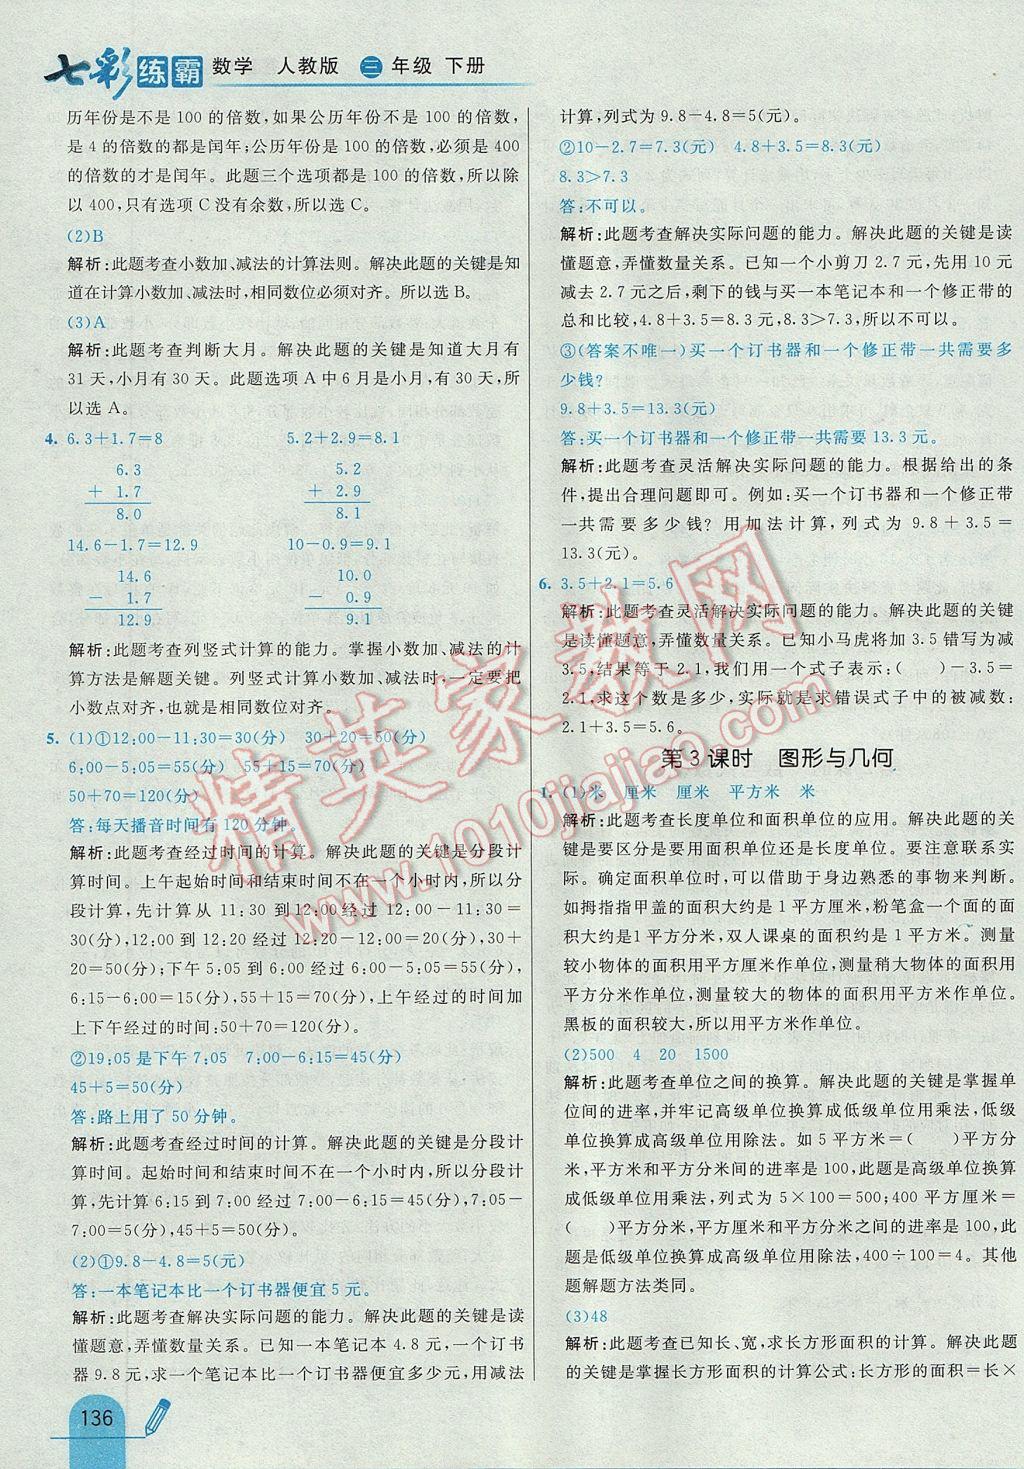 七彩练霸 数学 人教版 三年级 下册
历年份是不是 100 的倍数,如果公历年份不是 100 的倍数,
是 4 的倍数的都是闰年;公历年份是 100 的倍数,必须是 400
的倍数的才是闰年。此题三个选项都是 100 的倍数,所以除
以 400,只有选项 C 没有余数,所以选 C。
(2)B
解析:此题考查小数加、减法的计算法则。解决此题的关键是知
道在计算小数加、减法时,相同数位必须对齐。所以选 B。
(3)A
解析:此题考查判断大月。解决此题的关键是知道大月有
31 天,小月有 30 天。此题选项 A 中 6 月是小月,有 30 天,所
以选 A。
4. 6.3+1.7=8 5.2+2.9=8.1
6.3 5.2
+ 1.7 + 2.9
8.0 8.1
14.6-1.7=12.9 10-0.9=9.1
14.6 10.0
- 1.7 - 0.9
12.9 9.1
解析:此题考查列竖式计算的能力。掌握小数加、减法的计
算方法是解题关键。列竖式计算小数加、减法时,一定要把
小数点对齐,也就是相同数位对齐。
5. (1)①12:00-11:30=30(分) 30+20=50(分)
6:00-5:05=55(分) 55+15=70(分)
50+70=120(分)
答:每天播音时间有 120 分钟。
解析:此题考查经过时间的计算。解决此题的关键是分段计
算时间。上午起始时间和结束时间不在一个小时内,所以分
段计算,先计算从 11:30 到12:00经过 12:00-11:30=
30(分),12:00 到 12:20 经过 12:20-12:00=20(分),30+
20=50(分);下午 5:05 到 6:00 经过 6:00-5:05=55(分),
6:15-6:00=15(分),55+15=70(分),上午经过的时间加
上下午经过的时间:50+70=120(分)。
②19:05 是下午 7:05 7:00-6:15=45(分)
45+5=50(分)
答:路上用了 50 分钟。
解析:此题考查经过时间的计算。解决此题的关键是分段计
算时间。起始时间和结束时间不在一个小时内,所以分段计
算,先计算 6:15 到 7:00 经过 7:00-6:15=45(分),7:05-
7:00=5(分),45+5=50(分)。
(2)①9.8-4.8=5(元)
答:一本笔记本比一个订书器便宜 5 元。
解析:此题考查解决实际问题的能力。解决此题的关键是读
懂题意,弄懂数量关系。已知一本笔记本 4.8 元,一个订书
器 9.8 元,求一个笔记本比一个订书器便宜多少元,用减法
136
计算,列式为 9.8-4.8=5(元)。
②10-2.7=7.3(元) 4.8+3.5=8.3(元)
8.3>7.3
答:不可以。
解析:此题考查解决实际问题的能力。解决此题的关键是读
懂题意,弄懂数量关系。已知一个小剪刀 2.7 元,先用 10 元
减去 2.7 元之后,剩下的钱与买一本笔记本和一个修正带的
总和比较,4.8+3.5=8.3 元,8.3>7.3,所以不可以。
③(答案不唯一)买一个订书器和一个修正带一共需要多
少钱?
9.8+3.5=13.3(元)
答:买一个订书器和一个修正带一共需要 13.3 元。
解析:此题考查灵活解决实际问题的能力。根据给出的条
件,提出合理问题即可。例如:买一个订书器和一个修正带
一共需要多少钱? 用加法计算,列式为 9.8+3.5=
13.3(元)。
6. 3.5+2.1=5.6
解析:此题考查灵活解决实际问题的能力。解决此题的关键
是读懂题意,弄懂数量关系。已知小马虎将加 3.5 错写为减
3.5,结果等于 2.1,我们用一个式子表示:( )-3.5=
2.1,求这个数是多少,实际就是求错误式子中的被减数:
2.1+3.5=5.6。
第 3 课时 图形与几何
1. (1)米 厘米 厘米 平方米 米
解析:此题考查长度单位和面积单位的应用。解决此题的关
键是要区分是要用面积单位还是长度单位。要注意联系实
际。确定面积单位时,可以借助于身边熟悉的事物来判断。
如拇指指甲盖的面积大约是 1 平方厘米,粉笔盒一个面的面
积大约是1 平方分米,双人课桌的面积大约是 1 平方米。测量
较小物体的面积用平方厘米作单位,测量稍大物体的面积用
平方分米作单位,测量较大的物体的面积用平方米作单位。
黑板的面积较大,所以用平方米作单位。
(2)500 4 20 1500
解析:此题考查单位之间的换算。解决此题的关键是掌握单
位间的进率,并牢记高级单位换算成低级单位用乘法,低级
单位换算成高级单位用除法。如 5 平方米=( )平方分
米,平方米和平方分米间的进率是 100,此题是高级单位换算
成低级单位用乘法,列式为 5×100=500;400 平方厘米=
( )平方分米,平方厘米和平方分米之间的进率是 100,此
题是低级单位换算成高级单位用除法,400÷100=4。其他
题解题方法类同。
(3)48
解析:此题考查已知长、宽,求长方形面积的计算。解决此题
的关键是掌握长方形面积的计算公式:长方形的面积=长×
精英家教网
www.1010jiajiao.com